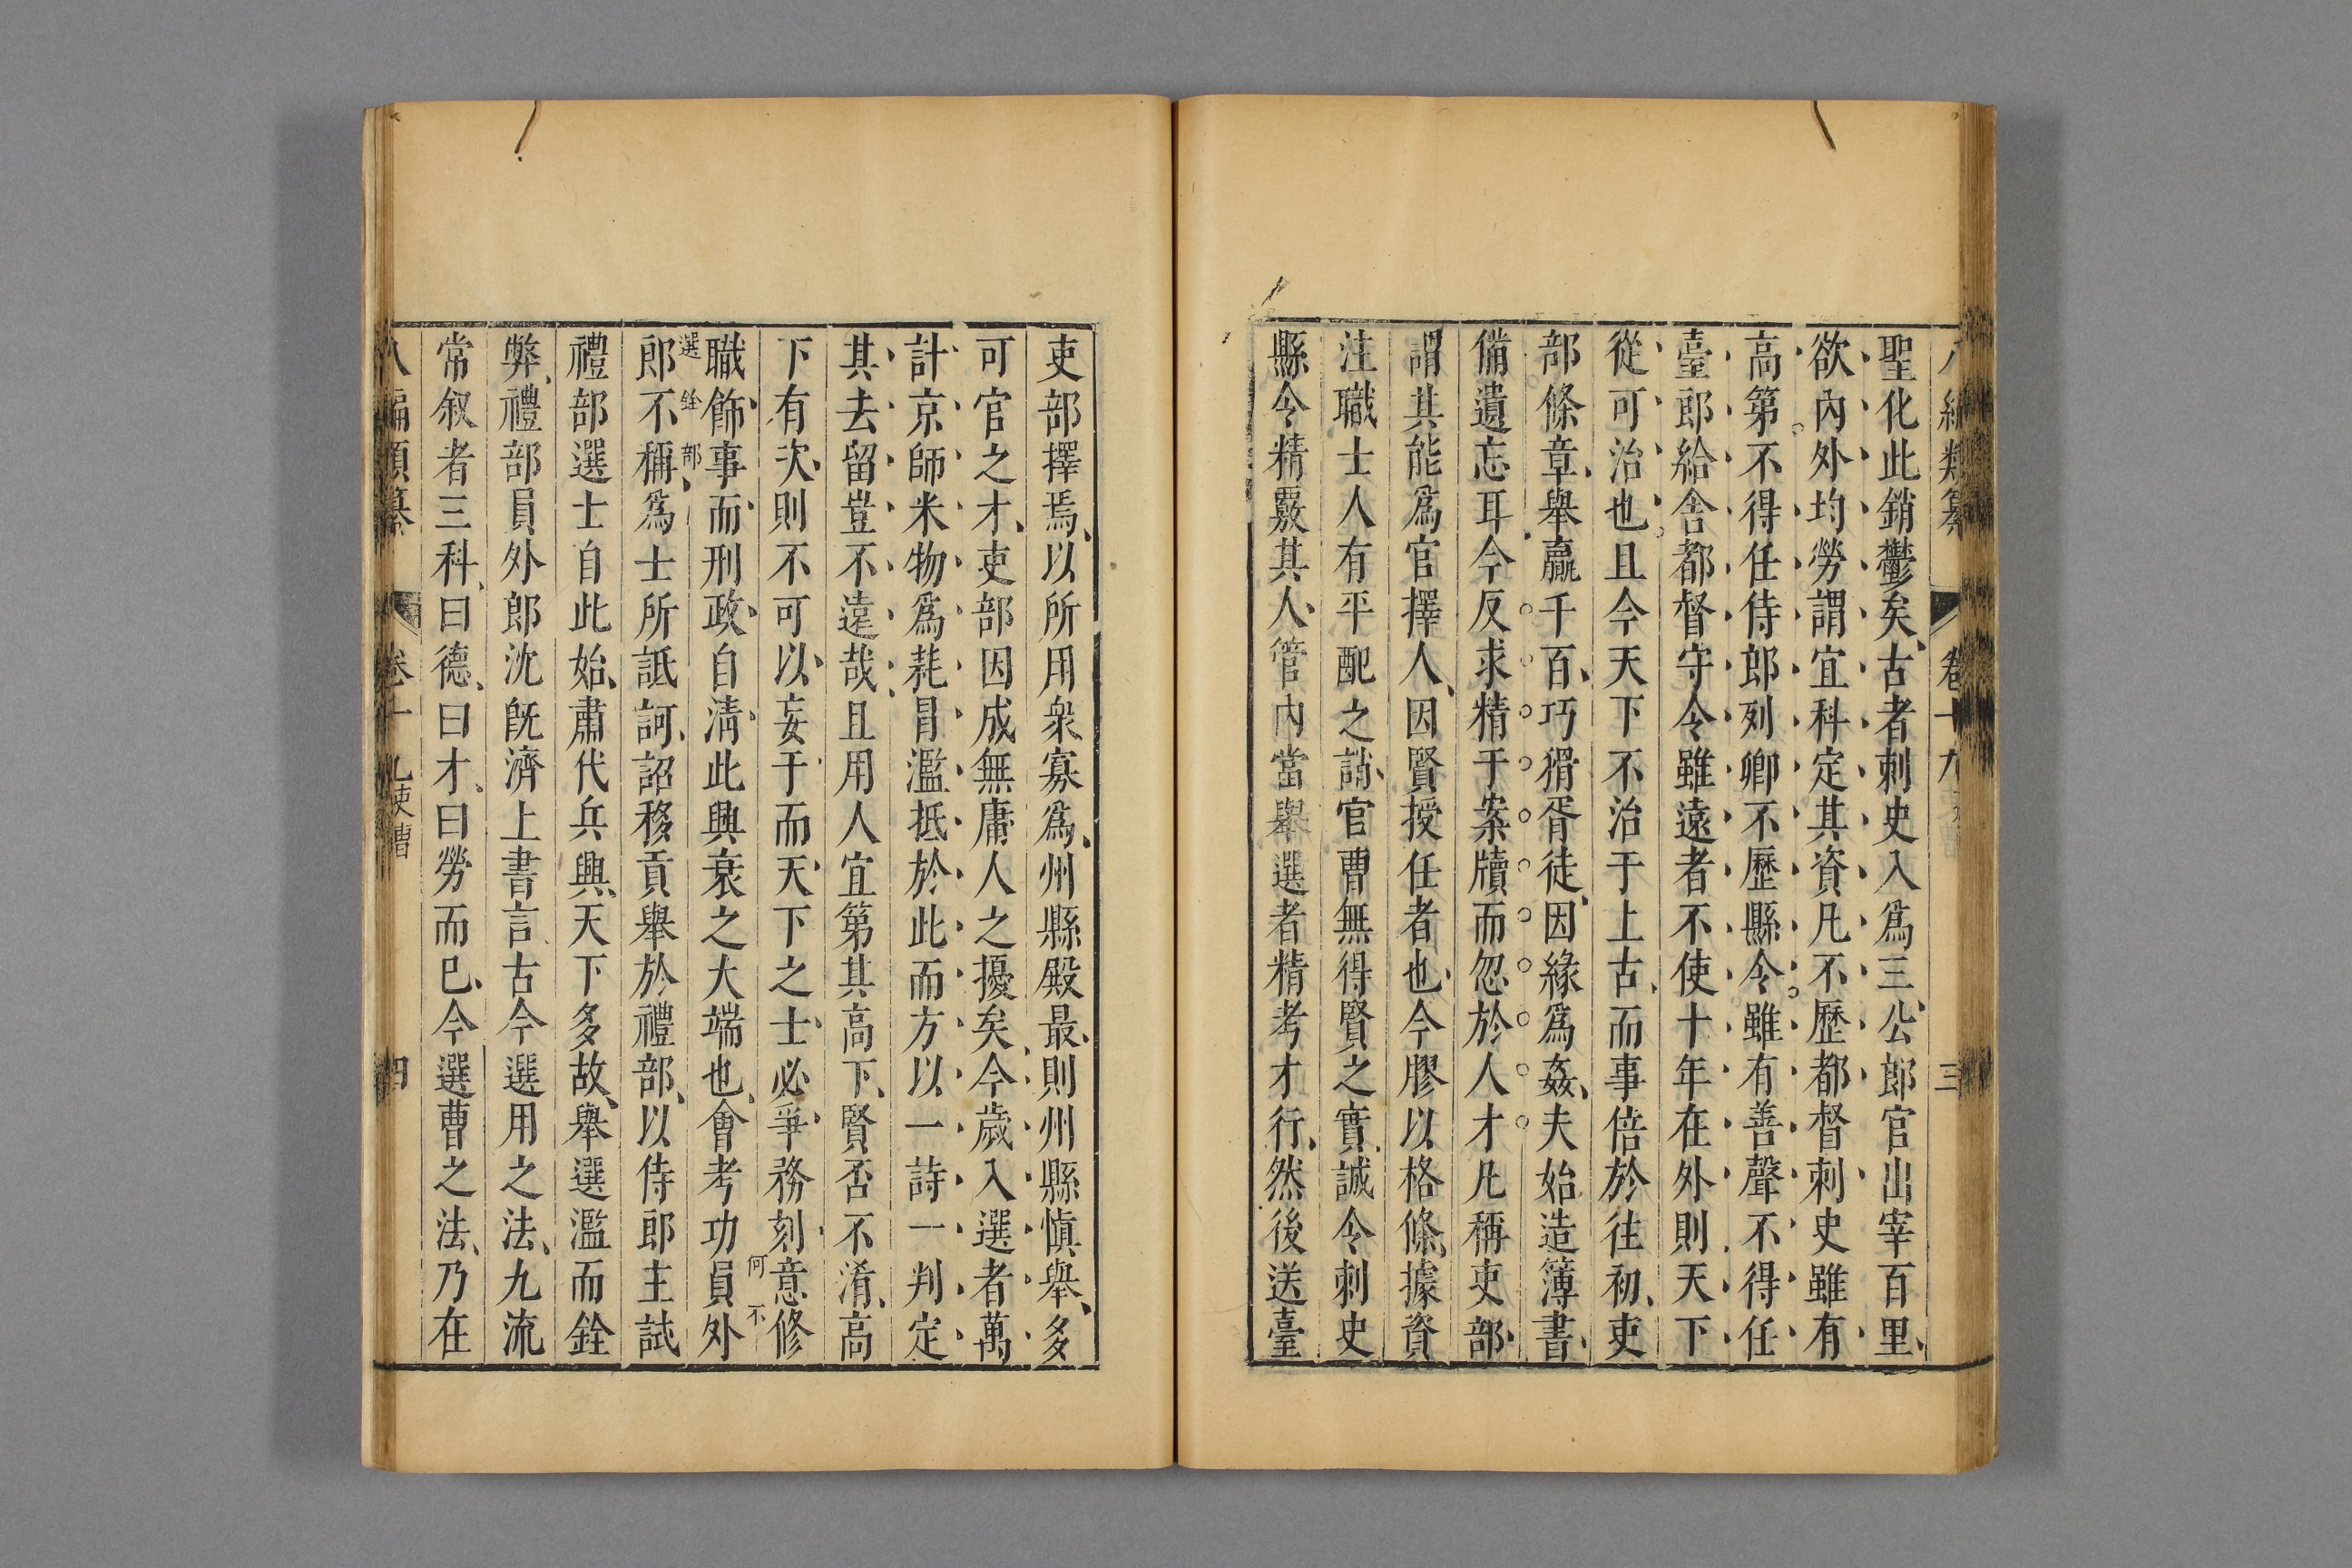 聖化此銷鬱矣古者刺史入爲三公郎官出宰百里
欲內外均勞謂宜科定其資凡不歷都督刺史雖有
高第不得任侍郎列卿不歷縣令雖有善聲不得任
臺郎給舍都督守令雖遠者不使十年在外則天下
從可治也且今天下不治于上古而事倍於往初吏
部條章舉贏千百巧猾胥徒因緣爲姦夫始造簿書
備遺忘耳今反求精于案牘而忽於人才凡稱吏部
謂其能爲官擇人因賢授任者也今膠以格條據資
注職士人有平配之誚官曹無得賢之實誠令刺史
縣令精覈其人管內當舉選者精考才行然後送臺
吏部擇焉以所用衆寡爲州縣殿最則州縣愼舉多
可官之才吏部因成無庸人之擾矣今歲入選者萬
計京師米物爲耗冒濫抵於此而方以一詩一判定
其去留豈不遠哉且用人宜第其高下賢否不淆高
下有次則不可以妄于而天下之士必爭務刻意修
何不
職飾事而刑政自淸此興衰之大端也會考功員外
選銓部
郎不稱爲士所詆訶詔移貢舉於禮部以侍郎主試
禮部選士自此始肅代兵興天下多故舉選濫而銓
弊禮部員外郎沈旣濟上書言古今選用之法九流
常叙者三科曰德曰才曰勞而已今選曹之法乃在
八編類纂 卷十九 三
八編類纂 卷十九 吏曹 四